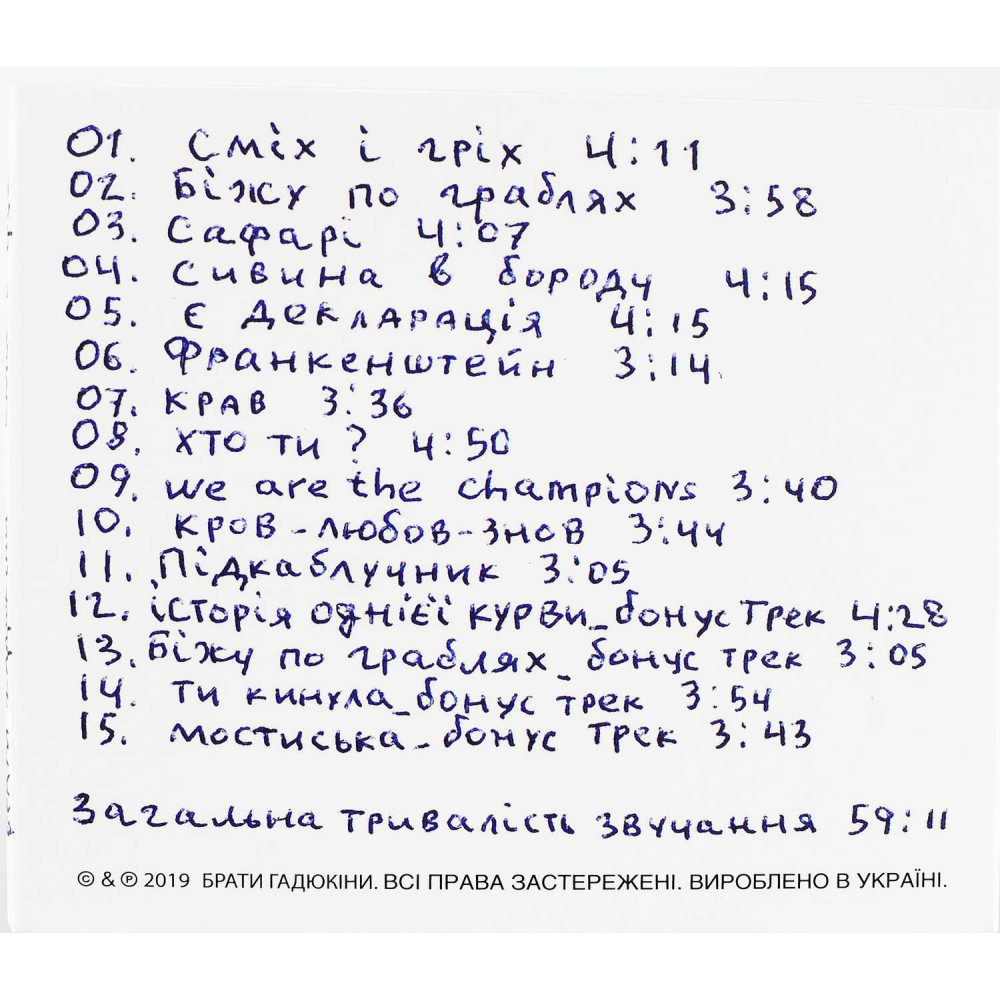 01. Сміх і гріх 4:11
02. Біжу по граблях 3:58
03. Сафарі 4:07
04. Сивина в бороду 4:15
05. Є декларація 4:15
06. Франкенштейн 3:14
07. Крав 3:36
08. Хто ти? 4:50
09. we are the champions 3:40
10. Кров-любов-знов 3:44
11. Підкаблучник 3:05
12. історія однієї курви_бонус трек 4:28
13. Біжу по граблях_бонус трек 3:05
14. ти кинула_бонус трек 3:54
15. мостиська_бонус трек 3:43
Загальна тривалість звучання 59:11
© & ℗ 2019 БРАТИ ГАДЮКІНИ. ВСІ ПРАВА ЗАСТЕРЕЖЕНІ. ВИРОБЛЕНО В УКРАЇНІ.